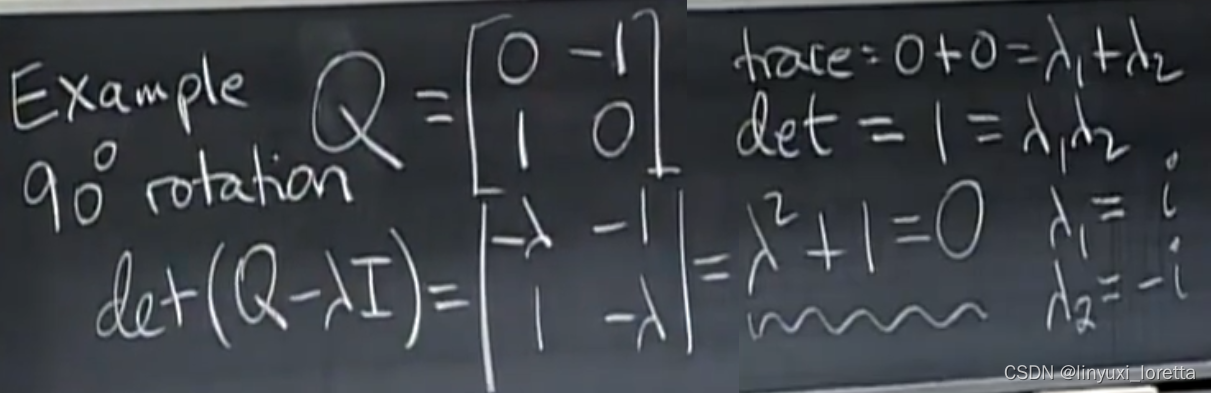 Example Q = [0 -1; 1 0] trace = 0+0 = λ₁+λ₂
90° rotation det = 1 = λ₁λ₂
det(Q-λI) = |-λ -1; 1 -λ| = λ²+1=0 λ₁ = i
λ₂ = -i
CSDN @linyuxi_loretta